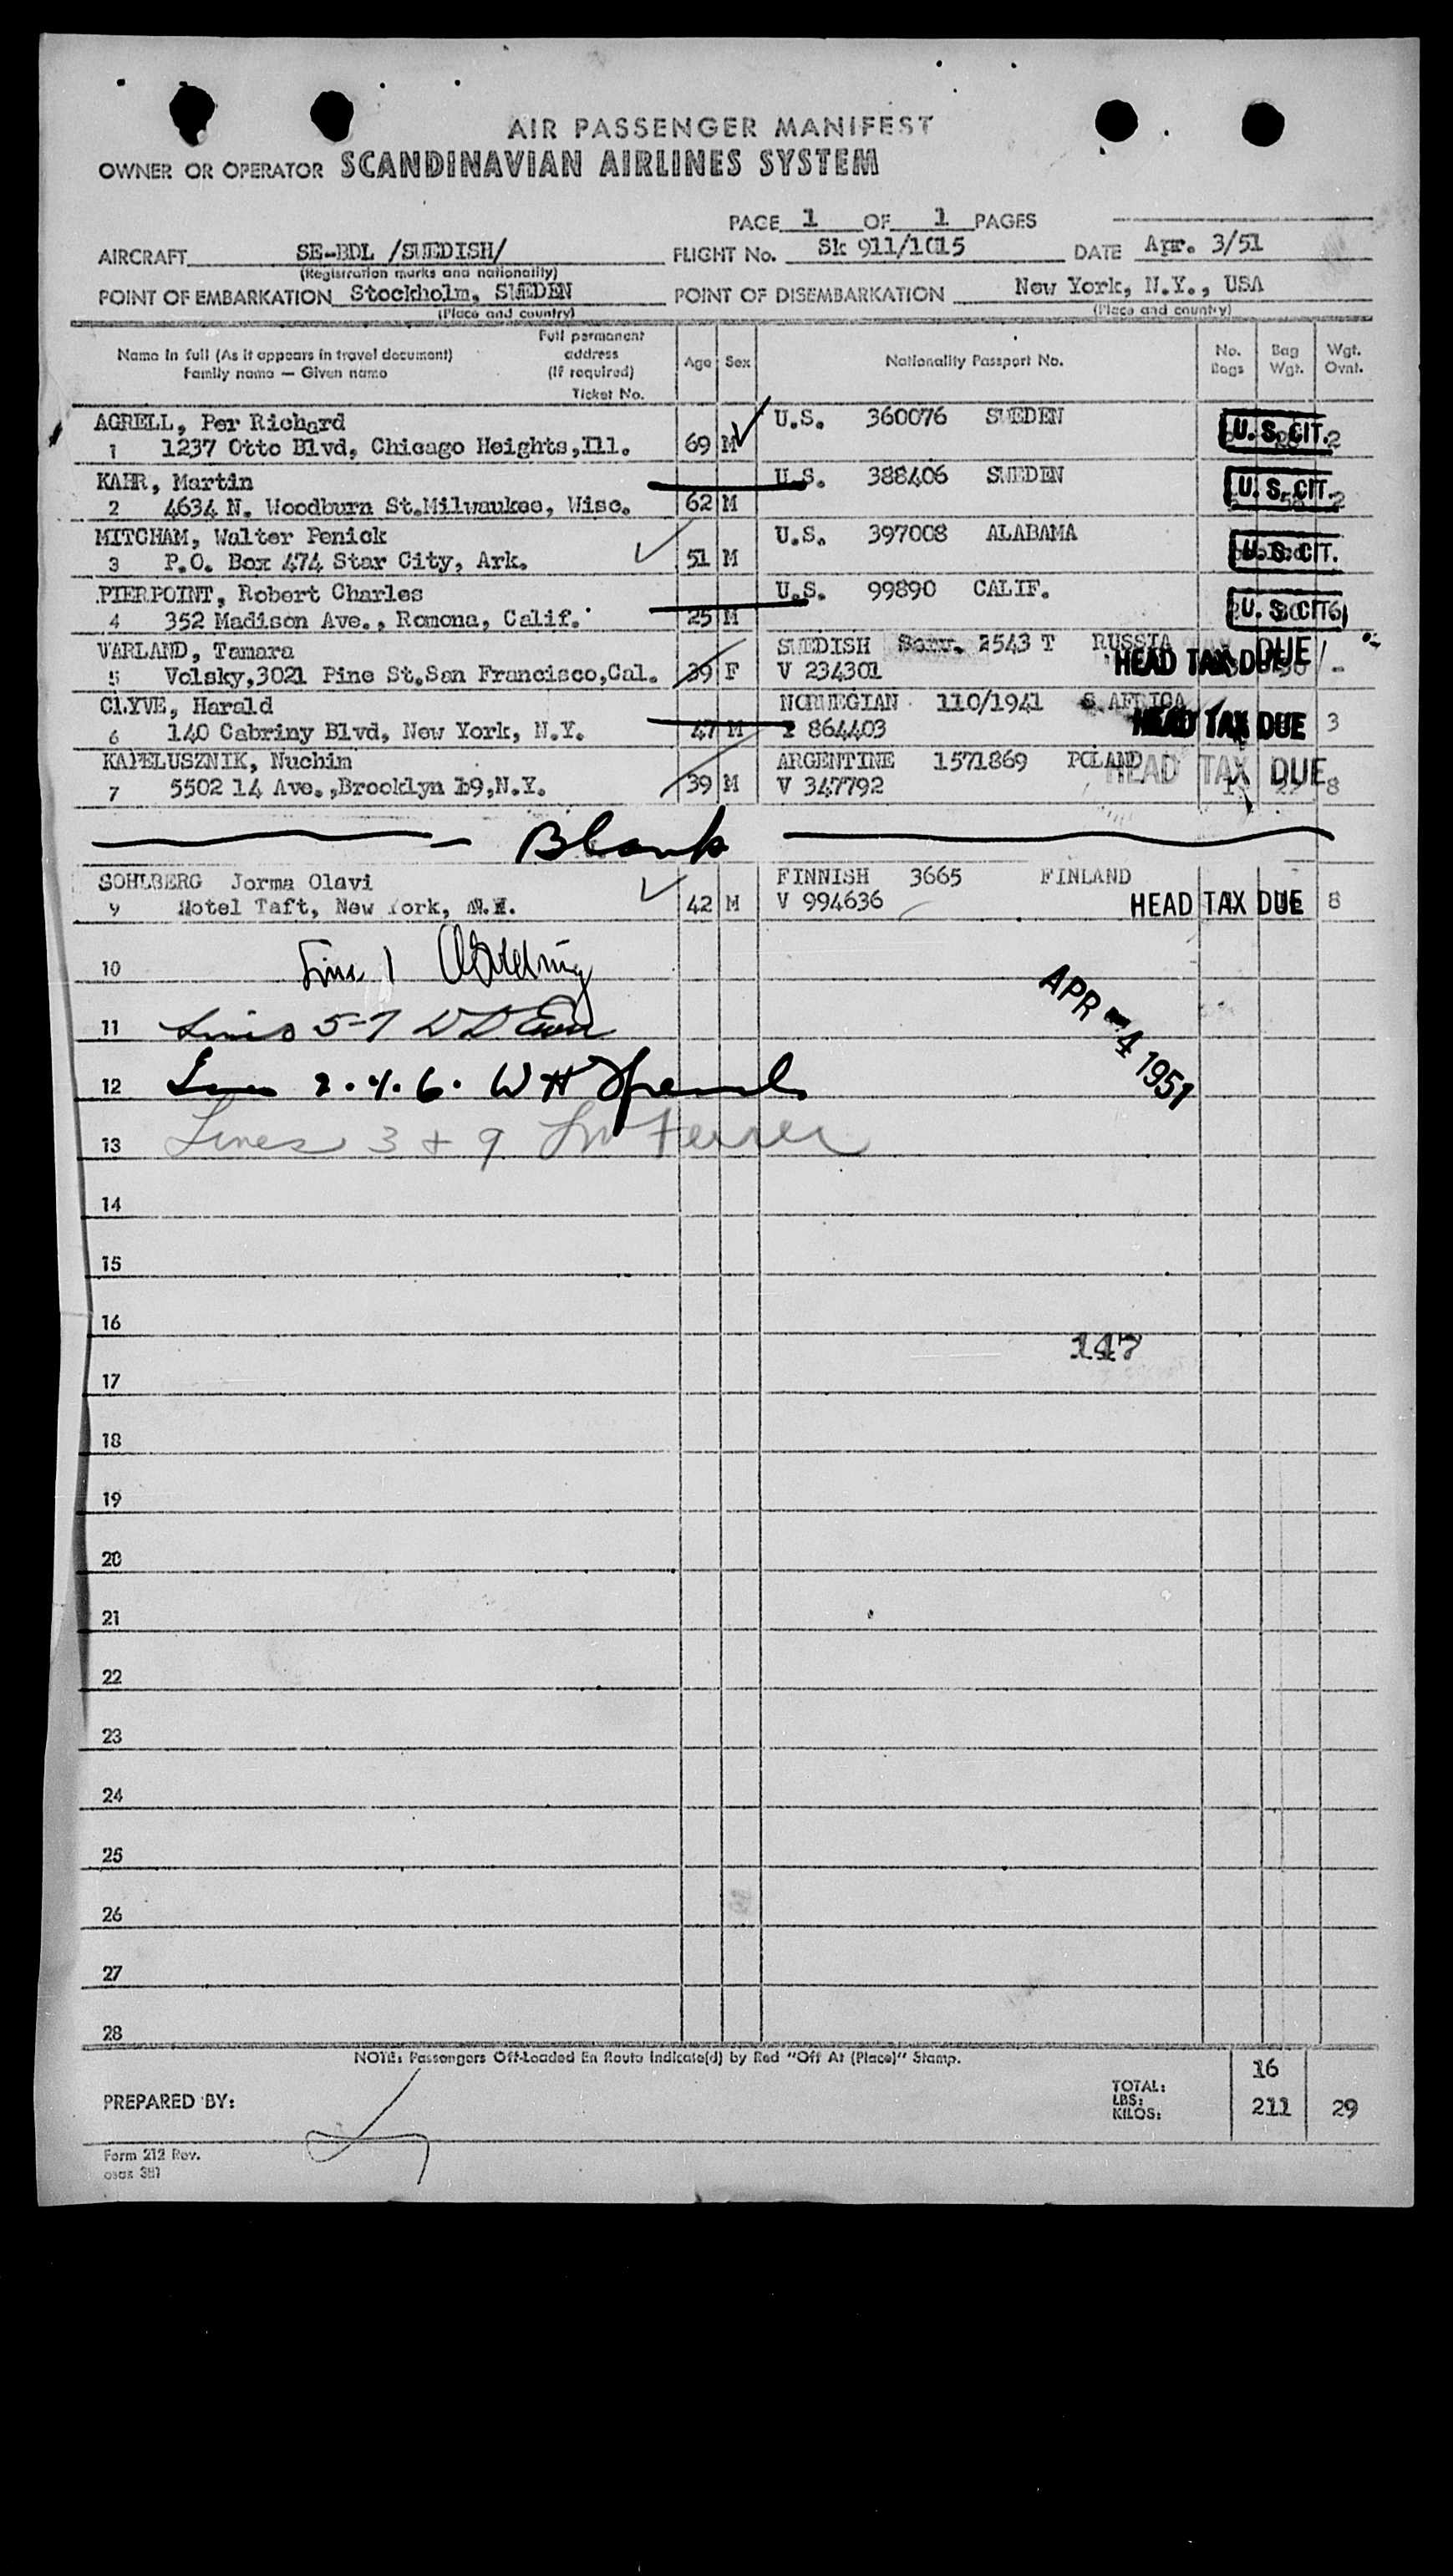 AIR PASSENGER MANIFEST
OWNER OR OPERATOR SCANDINAVIAN AIRLINES SYSTEM
PAGE 1 OF 1 PAGES
AIRCRAFT SE-BDL /SWEDISH/ FLIGHT No. Sk 911/1015 DATE Apr. 3/51
(Registration marks and nationality)
POINT OF EMBARKATION Stockholm, SWEDEN POINT OF DISEMBARKATION New York, N.Y., USA
(Place and country) (Place and country)
Name in full (As it appears in travel document) Full permanent address Age Sex Nationality Passport No. No. Bags Bag Wgt. Wgt. Ovnt.
Family name — Given name (If required)
Ticket No.
AGRELL, Per Richard U.S. 360076 SWEDEN
1 1237 Otto Blvd, Chicago Heights,Ill. 69 M U. S. CIT. 2
KAHR, Martin U.S. 388406 SWEDEN
2 4634 N. Woodburn St.Milwaukee, Wisc. 62 M U. S. CIT. 2
MITCHAM, Walter Penick U.S. 397008 ALABAMA
3 P.O. Box 474 Star City, Ark. 51 M U. S. CIT.
PIERPOINT, Robert Charles U.S. 99890 CALIF.
4 352 Madison Ave., Romona, Calif. 25 M U. S. CIT. 6
VARLAND, Tamara SWEDISH Serv. 2543 T RUSSIA
5 Volsky,3021 Pine St.San Francisco,Cal. 39 F V 234301 HEAD TAX DUE -
CLYVE, Harald NORWEGIAN 110/1941 S.AFRICA
6 140 Cabriny Blvd, New York, N.Y. 47 M 864403 HEAD TAX DUE 3
KAPELUSZNIK, Nuchim ARGENTINE 1571869 POLAND
7 5502 14 Ave.,Brooklyn 19,N.Y. 39 M V 347792 HEAD TAX DUE 8
Blank
SOHLBERG Jorma Olavi FINNISH 3665 FINLAND
9 Hotel Taft, New York, N.Y. 42 M V 994636 HEAD TAX DUE 8
10 Line 1
11 Lines 5-7
APR -4 1951
12 2.4.6. W H
13 Lines 3 + 9 Ferrer
14
15
16
147
17
18
19
20
21
22
23
24
25
26
27
28
NOTE: Passengers Off-Loaded En Route Indicate(d) by Red "Off At (Place)" Stamp.
16
PREPARED BY: TOTAL:
LBS:
KILOS: 211 29
Form 212 Rev.